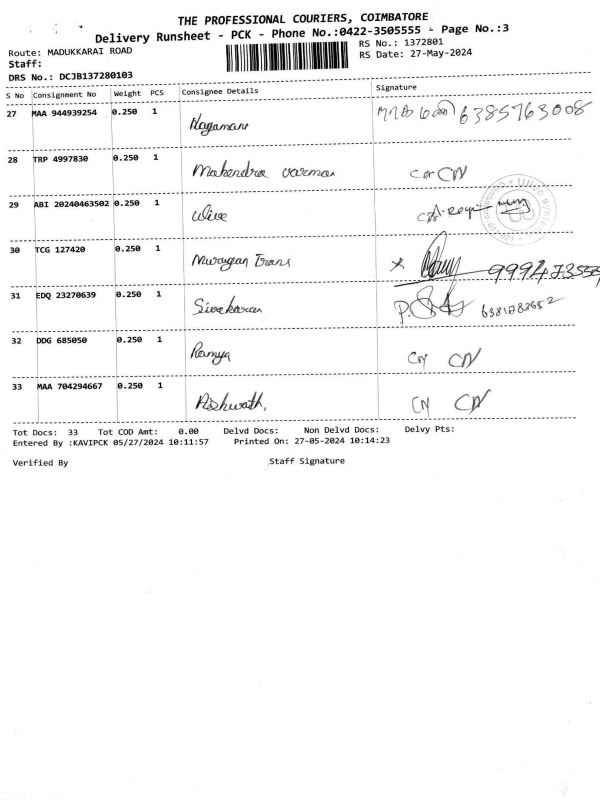 THE PROFESSIONAL COURIERS, COIMBATORE
Delivery Runsheet - PCK - Phone No.:0422-3505555 - Page No.:3
Route: MADUKKARAI ROAD RS No.: 1372801
Staff: RS Date: 27-May-2024
DRS No.: DCJB137280103
S No Consignment No Weight PCS Consignee Details Signature
27 MAA 944939254 0.250 1 Nagamani 6385763008
28 TRP 4997830 0.250 1 Mahendra varman CN CN
29 ABI 20240463502 0.250 1
30 TCG 127420 0.250 1 Murugan Trans
31 EDQ 23270639 0.250 1 Sivakaran P. 6381783652
32 DDG 685050 0.250 1 Ramya CN CN
33 MAA 704294667 0.250 1 Rishwath, CN CN
Tot Docs: 33 Tot COD Amt: 0.00 Delvd Docs: Non Delvd Docs: Delvy Pts:
Entered By :KAVIPCK 05/27/2024 10:11:57 Printed On: 27-05-2024 10:14:23
Verified By Staff Signature